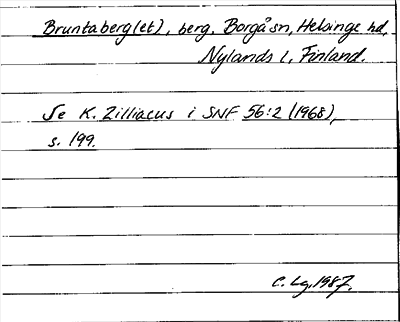 Bruntaberg(et), berg. Borgå sn, Helsinge hd,
Nylands l, Finland.
Se K. Zilliacus i SNF 56:2 (1968),
s. 199.
C. Lg. 1987.